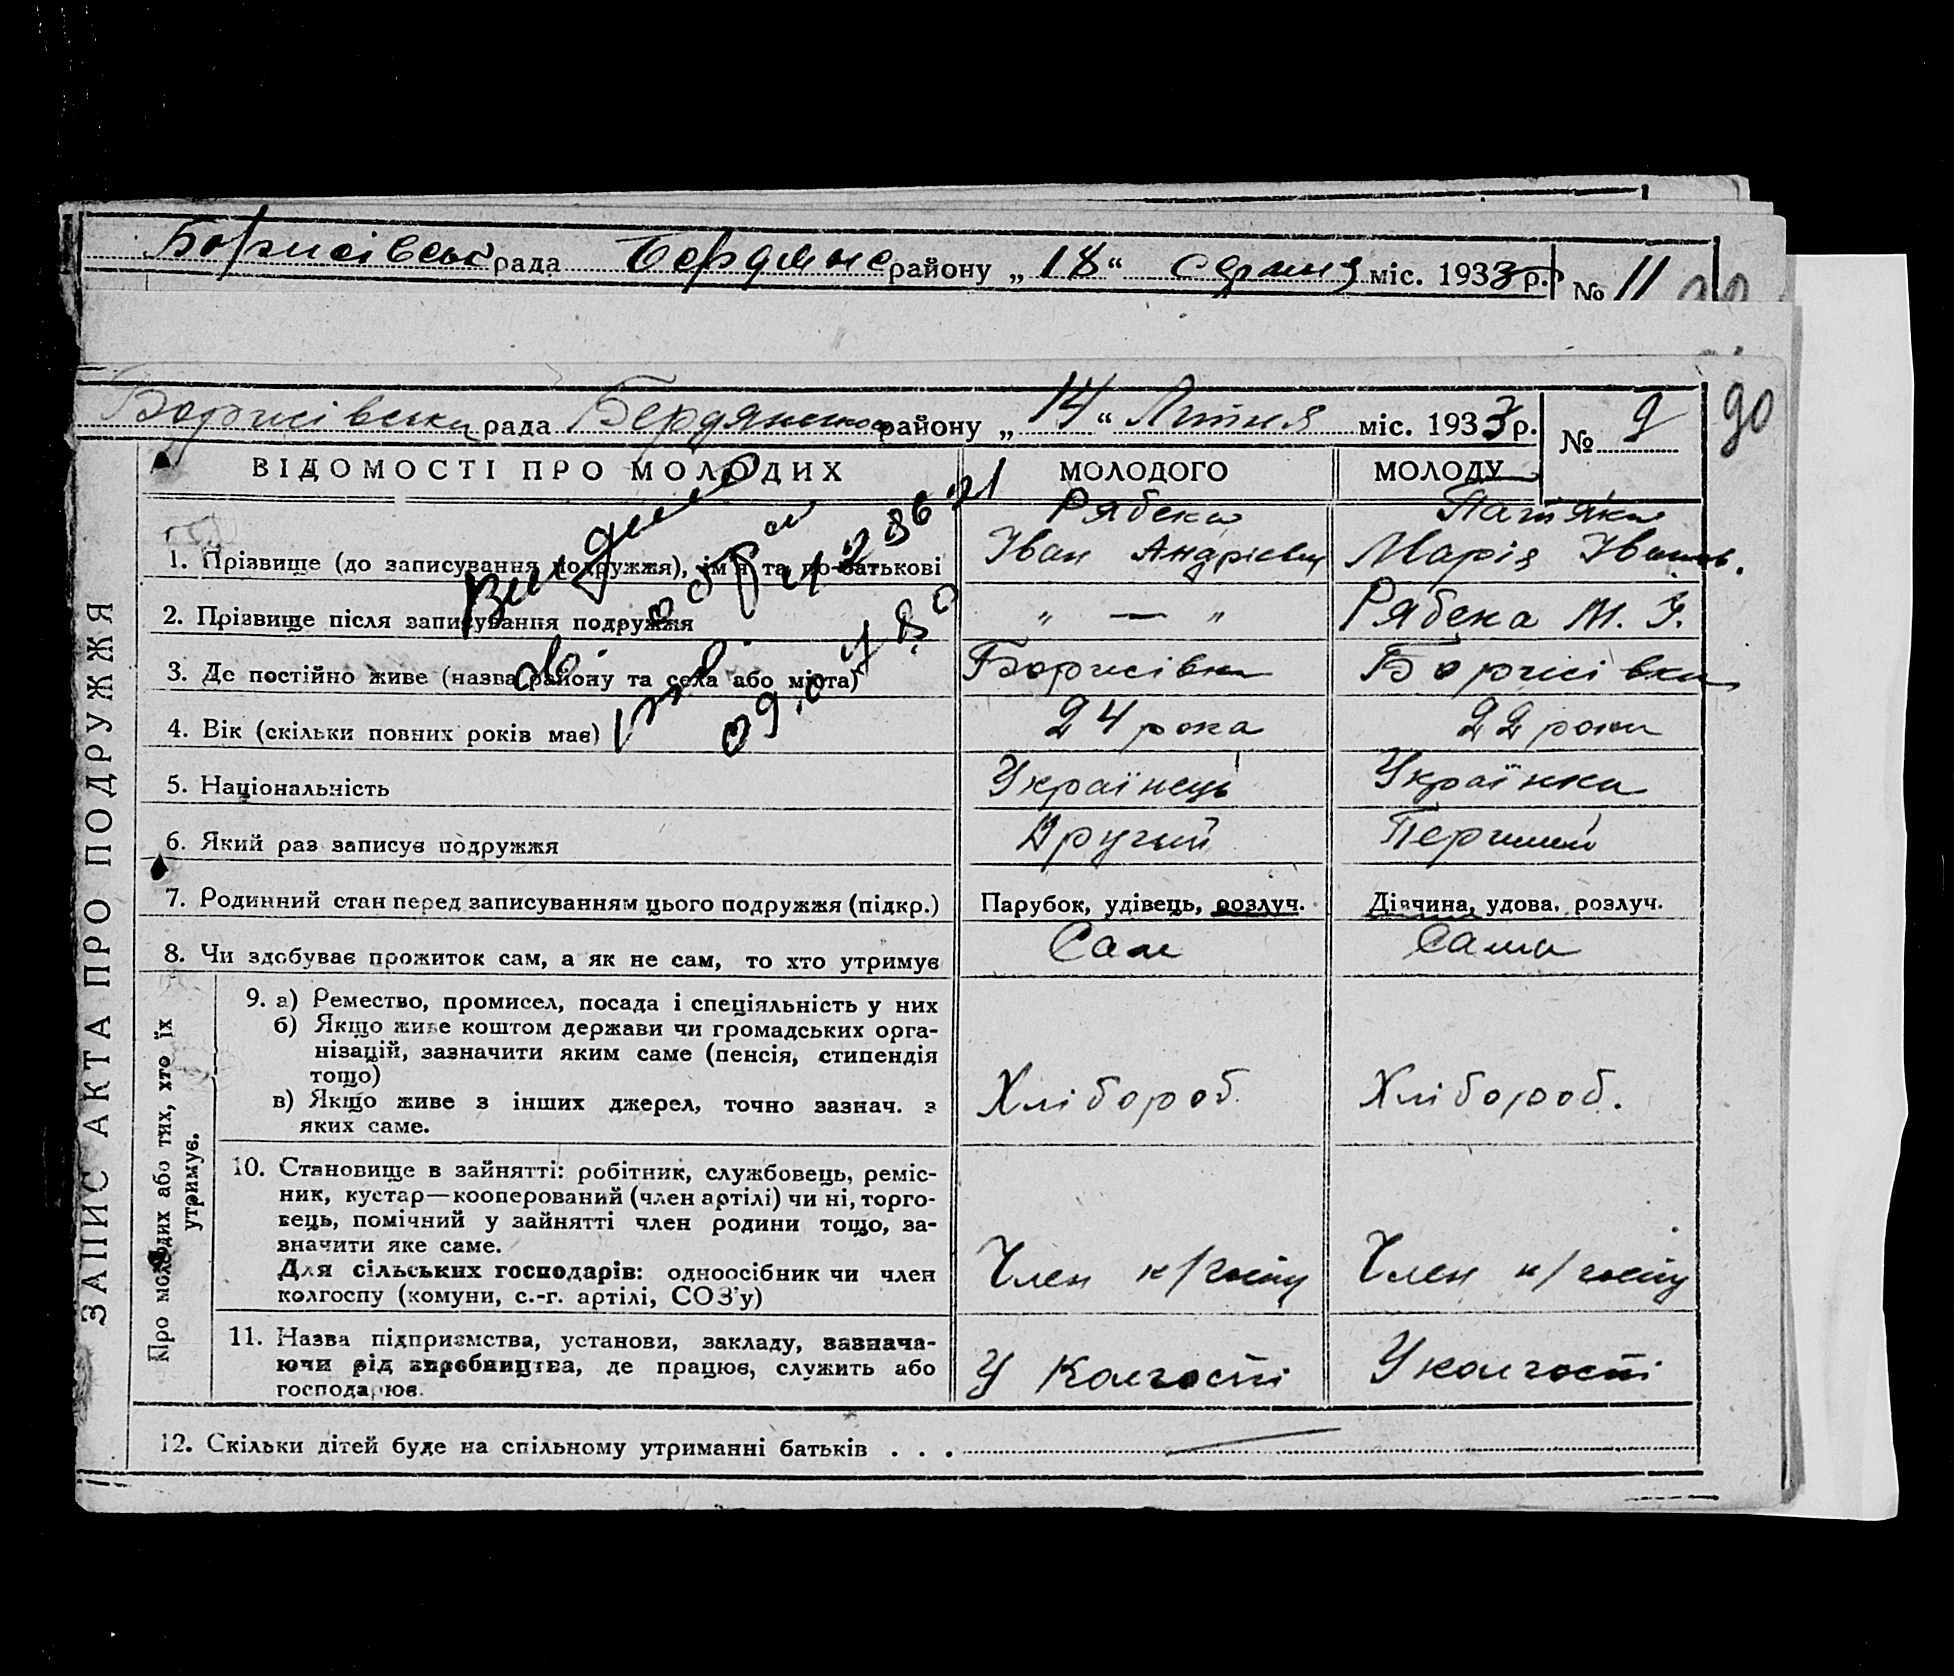 Борисівськ рада Бердянс району „18“ серпня міс. 1933 р. № 11
90
Борисівська рада Бердянського району „14“ Липня міс. 1933 р. № 9
ВІДОМОСТІ ПРО МОЛОДИХ МОЛОДОГО МОЛОДУ
Рябека
1. Прізвище (до записування подружжя), ім'я та по-батькові Іван Андрієвич Марія Іванів.
2. Прізвище після записування подружжя „ — „ Рябека М. І.
3. Де постійно живе (назва району та села або міста) Борисівка Борисівка
4. Вік (скільки повних років має) 24 рока 22 роки
5. Національність Українець Українка
6. Який раз записує подружжя Другий Перший
7. Родинний стан перед записуванням цього подружжя (підкр.) Парубок, удівець, розлуч. Дівчина, удова, розлуч.
8. Чи здобуває прожиток сам, а як не сам, то хто утримує Сам Сама
ЗАПИС АКТА ПРО ПОДРУЖЖЯ
Про молодих або тих, хто їх утримує.
9. а) Ремество, промисел, посада і спеціяльність у них
б) Якщо живе коштом держави чи громадських орга-
нізацій, зазначити яким саме (пенсія, стипендія
тощо)
в) Якщо живе з інших джерел, точно зазнач. з
яких саме.
Хлібороб. Хлібороб.
10. Становище в зайнятті: робітник, службовець, реміс-
ник, кустар—кооперований (член артілі) чи ні, торго-
вець, помічний у зайнятті член родини тощо, за-
значити яке саме.
Для сільських господарів: одноосібник чи член
колгоспу (комуни, с.-г. артілі, СОЗ'у)
Член к/госпу Член к/госпу
11. Назва підприємства, установи, закладу, зазнача-
ючи рід виробництва, де працює, служить або
господарює.
У Колгоспі У колгоспі
12. Скільки дітей буде на спільному утриманні батьків . . .